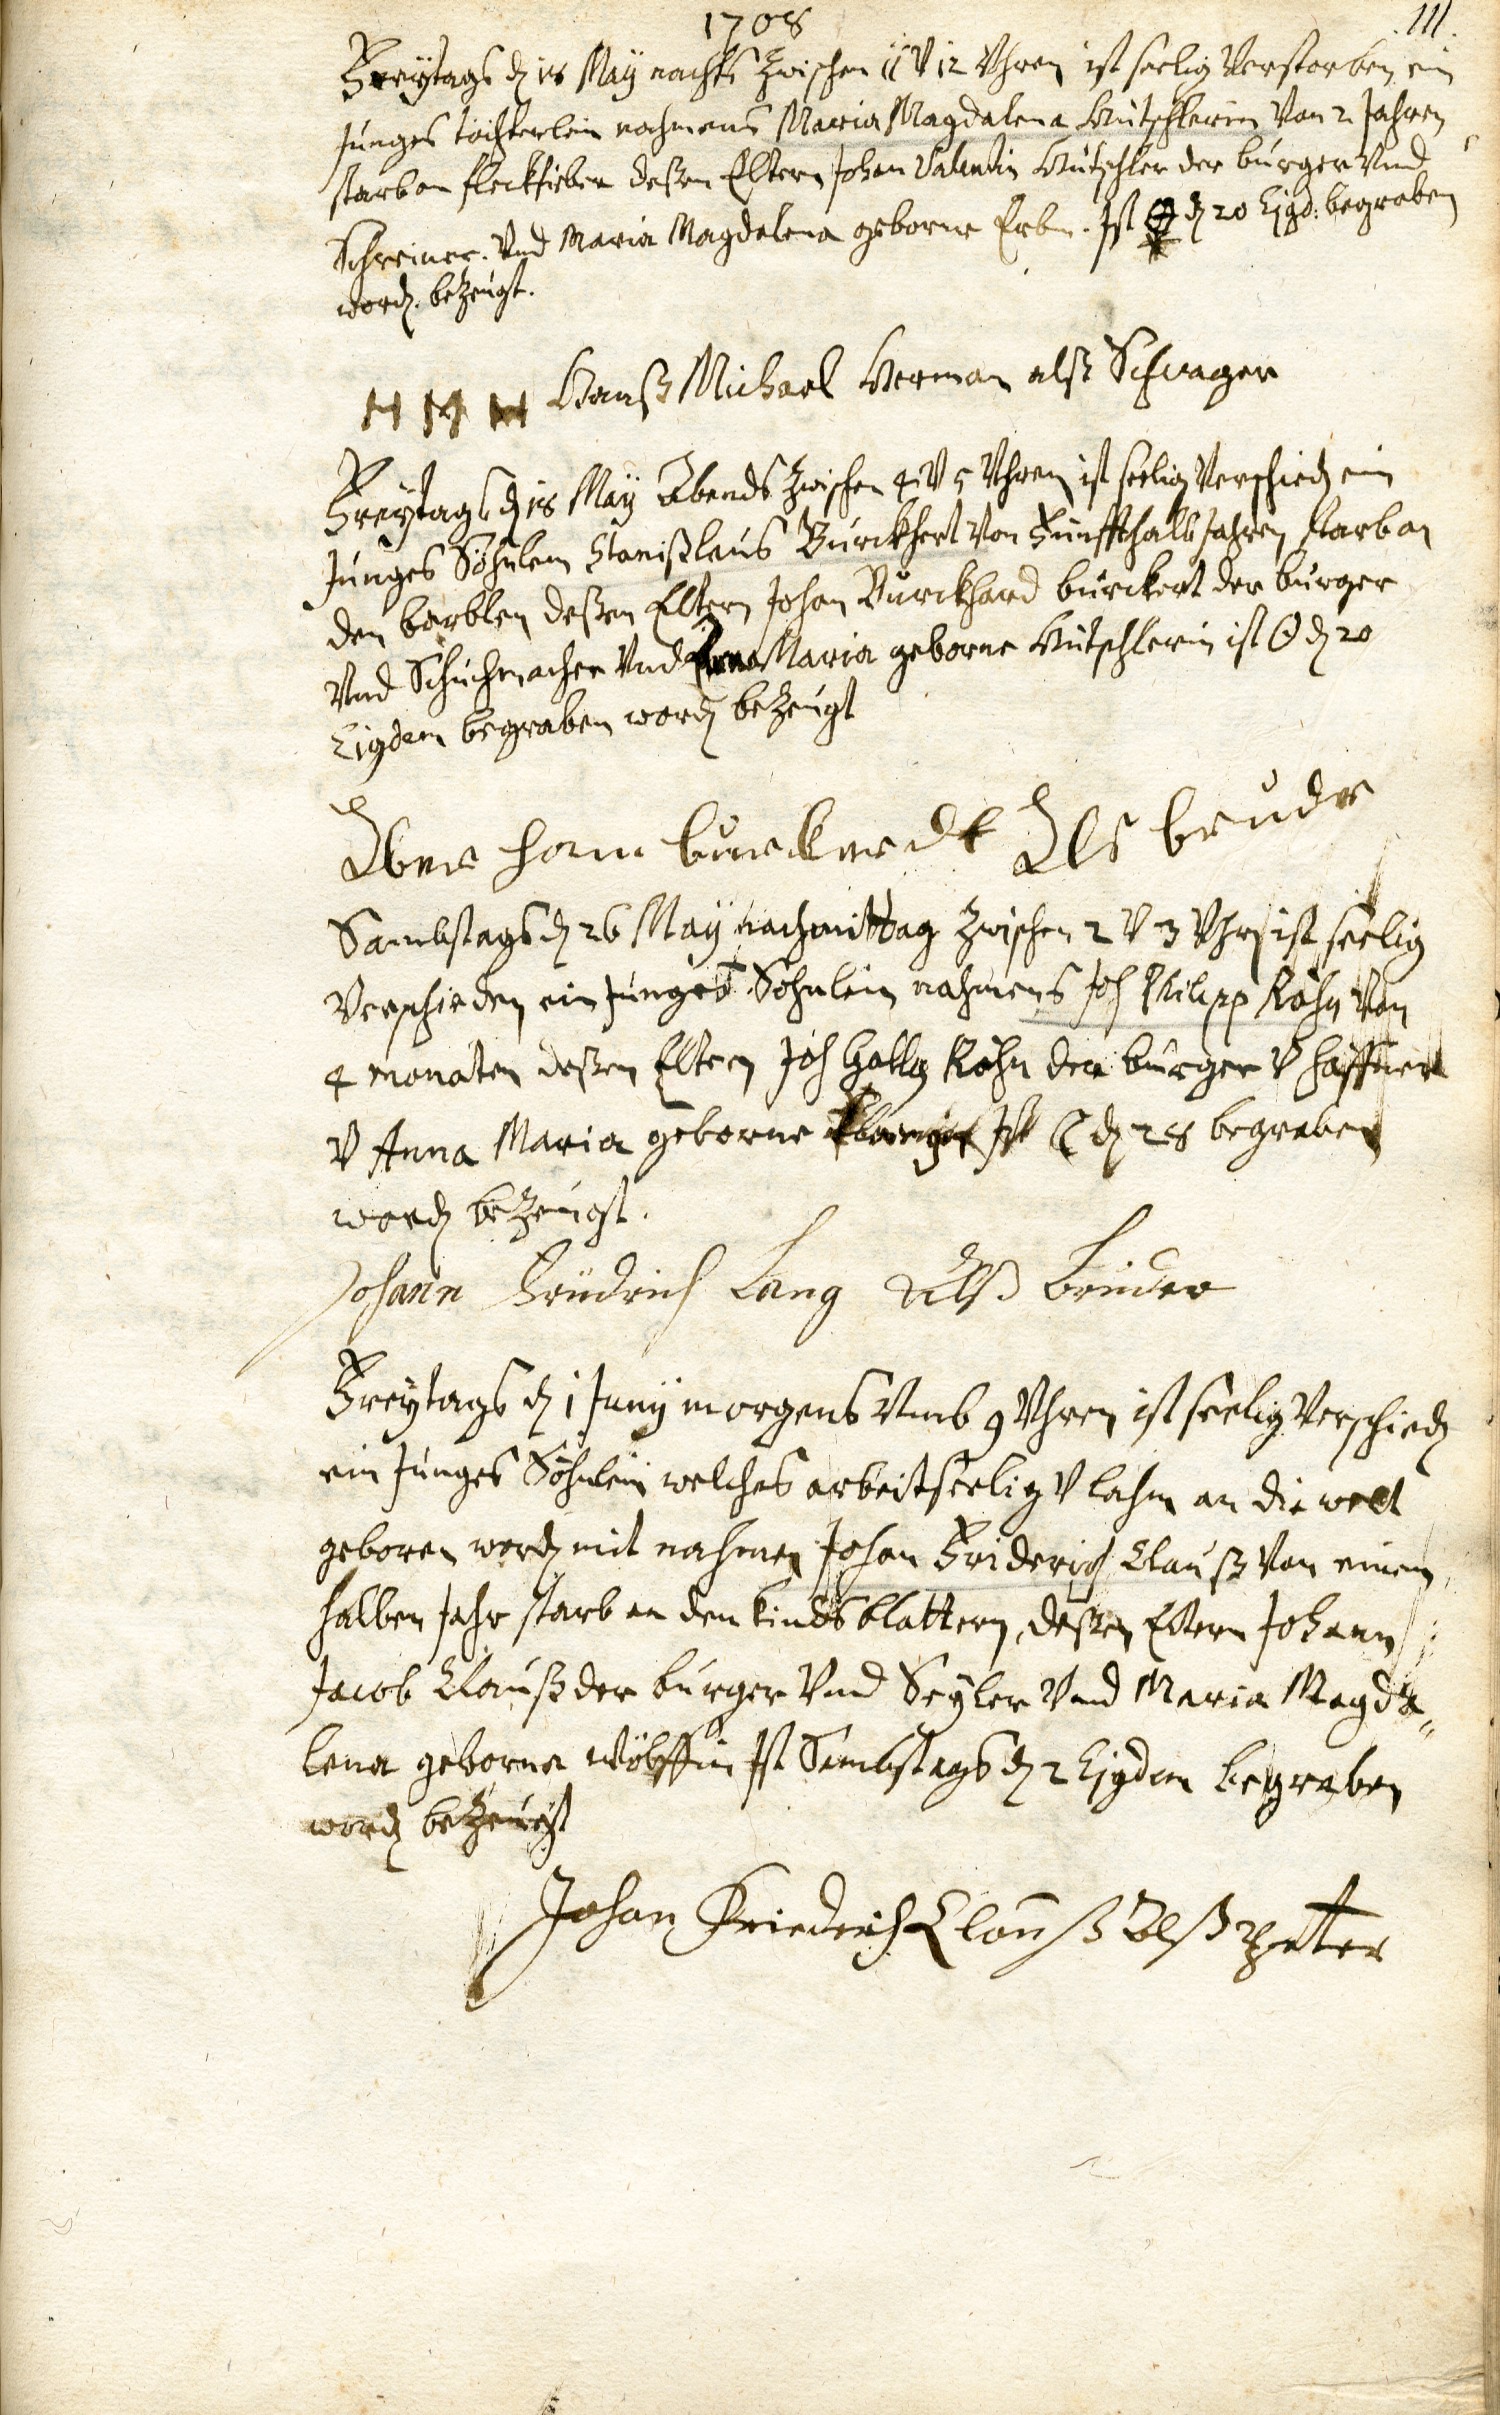 1708
111.
Freytags dē 18 Maÿ nachts zwischen 11 V 12 Uhren ist seelig Verstorben ein
Junges töchterlein nahmens Maria Magdalena Hütschlerin Von 2 Jahren
starb am fleckfieber deßen Eltern Johan Valentin Hütschler der burger Vnd
Schreiner. Vnd Maria Magdalena geborne Erbin. Ist dē 20 Ejgd. begraben
word. bezeugt.
H M H Hanß Michael Herman alß Schwager
Freytags dē 18 Maÿ Abends zwischen 4 V 5 Uhren ist seelig Verschiedē ein
Junges Söhnlein Stanißlaus Burckhert Von Fünffthalb Jahren starb an
den barblen deßen Eltern Johan Burckhard burckert der burger
Vnd Schuhmacher Vnd Anna Maria geborne Hütschlerin ist ☉ dē 20
Ejgdem begraben wordē bezeugt
Aber ham burckerdt Als bruder
Sambstags dē 26 Maÿ nachmittag zwischen 2 V 3 Uhr ist seelig
Verschieden ein Junges Söhnlein nahmens Joh Philipp Röhn Von
4 monaten deßen Eltern Joh Gallg Röhn der burger V haffner
V Anna Maria geborne Ist ☾ dē 28 begraben
wordē bezeugt.
Johann Friedrich Lang Alß bruder
Freytags dē 1 Junÿ morgens Vmb 9 Uhren ist seelig Verschiedē
ein Junges Söhnlein welches arbeitseelig V lahm an die welt
geboren wordē mit nahmen Johan Friderich Clauß Von einem
halben Jahr starb an den kindsblattern, deßen Eltern Johann
Jacob Clauß der burger Vnd Seyler Vnd Maria Magda„
lena geborne Wölffin Ist Sambstags dē 2 Ejgdem begraben
wordē bezeugt
Johan Friedrich Clauß Alß petter